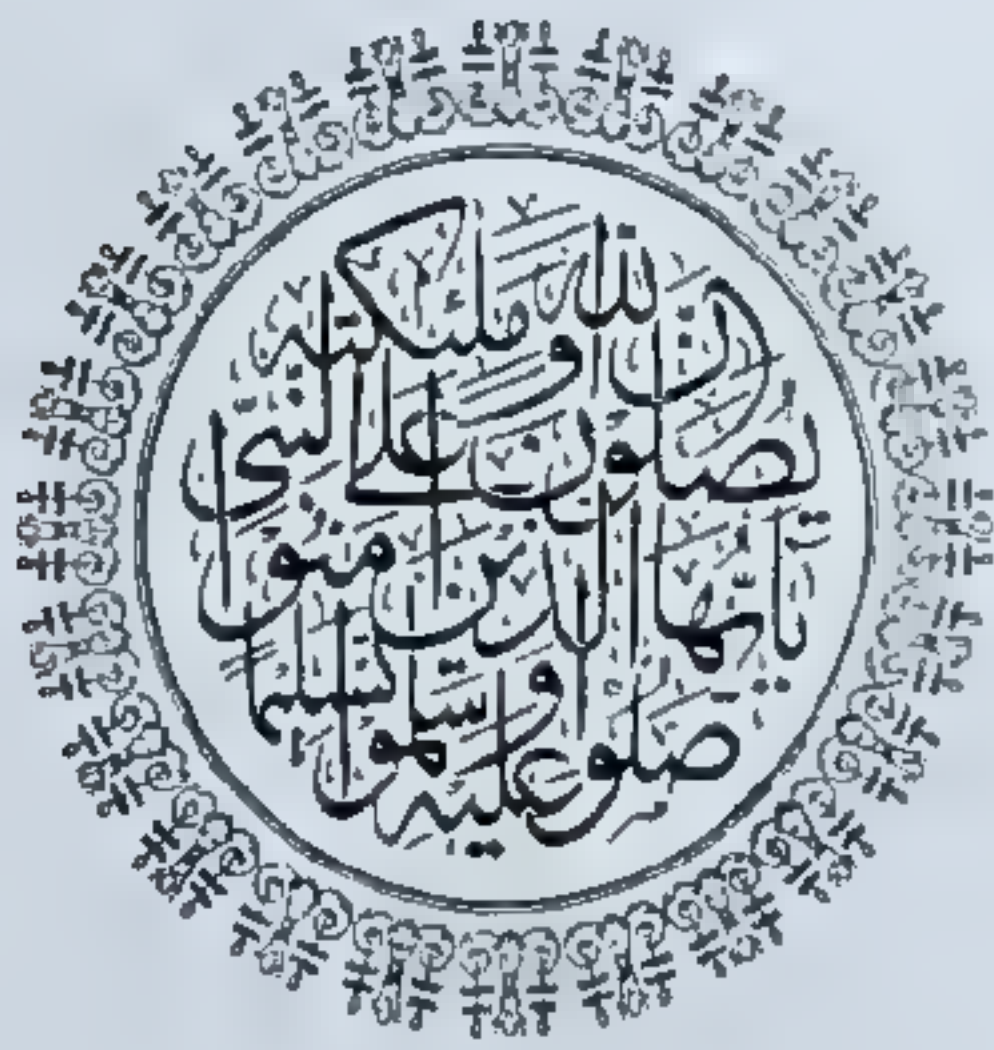 إن الله وملئكته
يصلون على النبي
يأيها الذين ءامنوا
صلوا عليه وسلموا تسليما